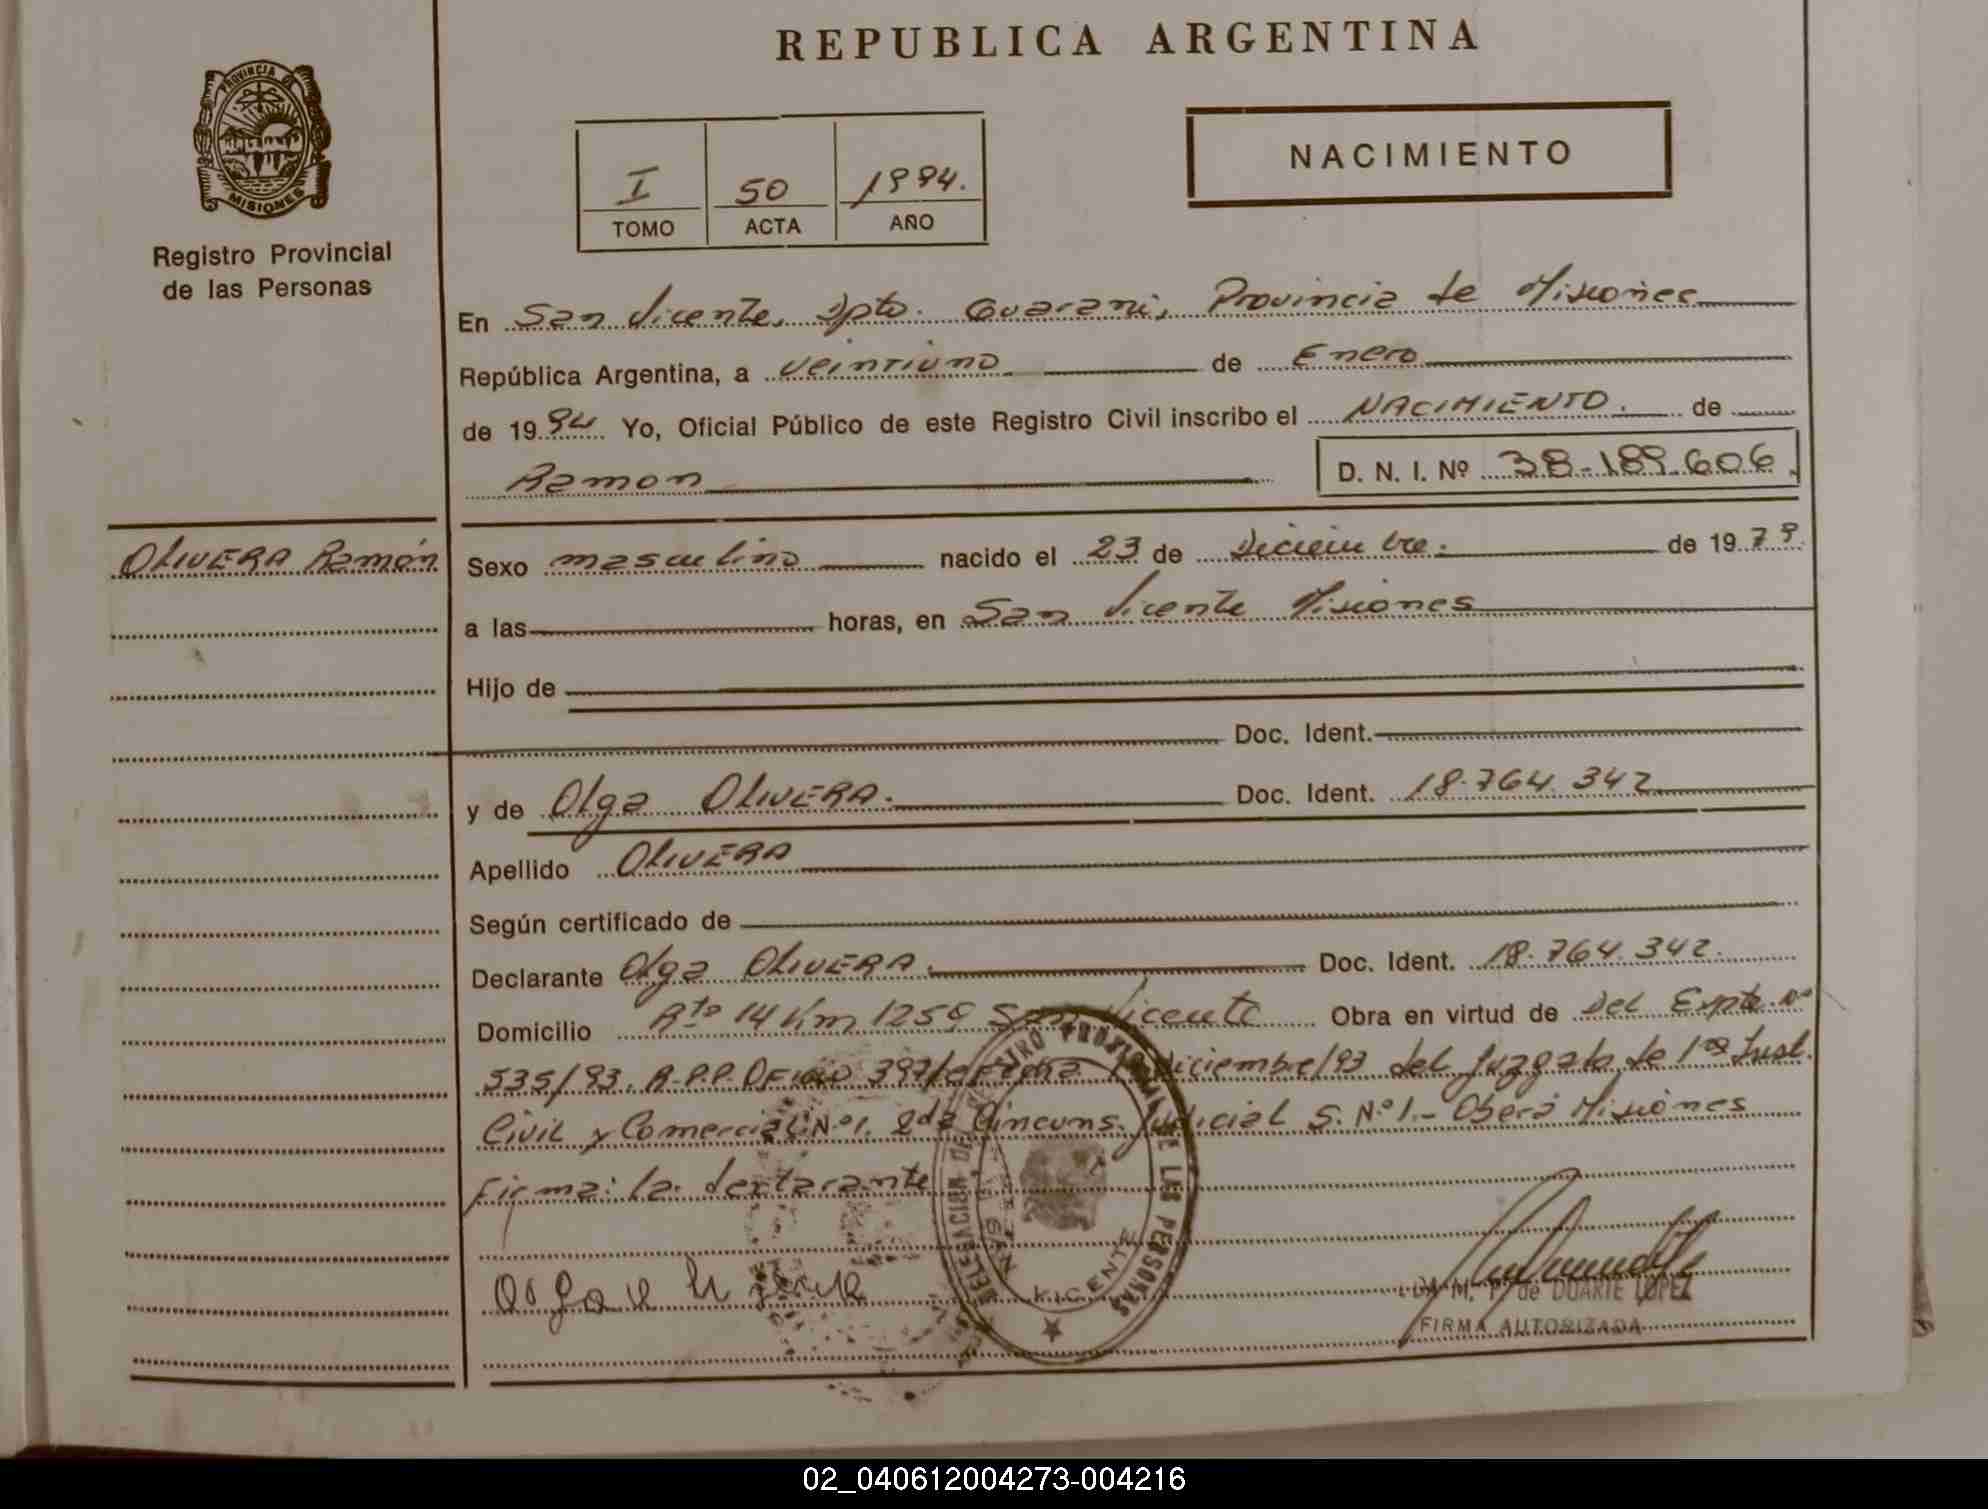 REPUBLICA ARGENTINA
PROVINCIA DE
MISIONES
Registro Provincial
de las Personas
I 50 1994.
TOMO ACTA AÑO
NACIMIENTO
En San Vicente, Dpto. Guarani, Provincia de Misiones
República Argentina, a veintiuno de Enero
de 1994 Yo, Oficial Público de este Registro Civil inscribo el NACIMIENTO. de
Ramon D. N. I. Nº 38-189.606.
OLIVERA Ramón
Sexo masculino nacido el 23 de Diciembre. de 1979.
a las horas, en San Vicente Misiones
Hijo de
Doc. Ident.
y de Olga OLIVERA. Doc. Ident. 18.764.342
Apellido OLIVERA
Según certificado de
Declarante Olga OLIVERA. Doc. Ident. 18.764.342.
Domicilio Rta 14 Km 1250 San Vicente Obra en virtud de Del Expte. Nº
535/93. R.P.P. Oficio 397 Fecha Diciembre/93 del Juzgado de 1ra Inst.
Civil y Comercial Nº1. 2da Circuns. Judicial S. Nº1.- Oberá Misiones
Firma: la declarante
DELEGACION DEL REGISTRO PROVINCIAL DE LAS PERSONAS
SAN VICENTE
de DUARTE LOPEZ
FIRMA AUTORIZADA
02_040612004273-004216